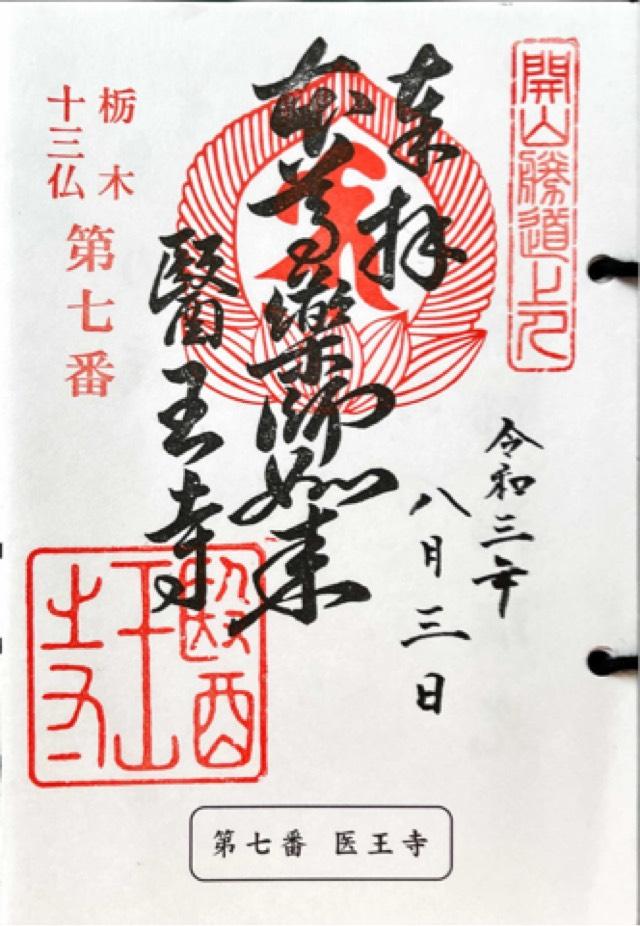 開山勝道上人
奉拝
令和三年
八月三日
本尊薬師如来
醫王寺
栃木
十三仏
第七番
醫王寺
第七番 医王寺